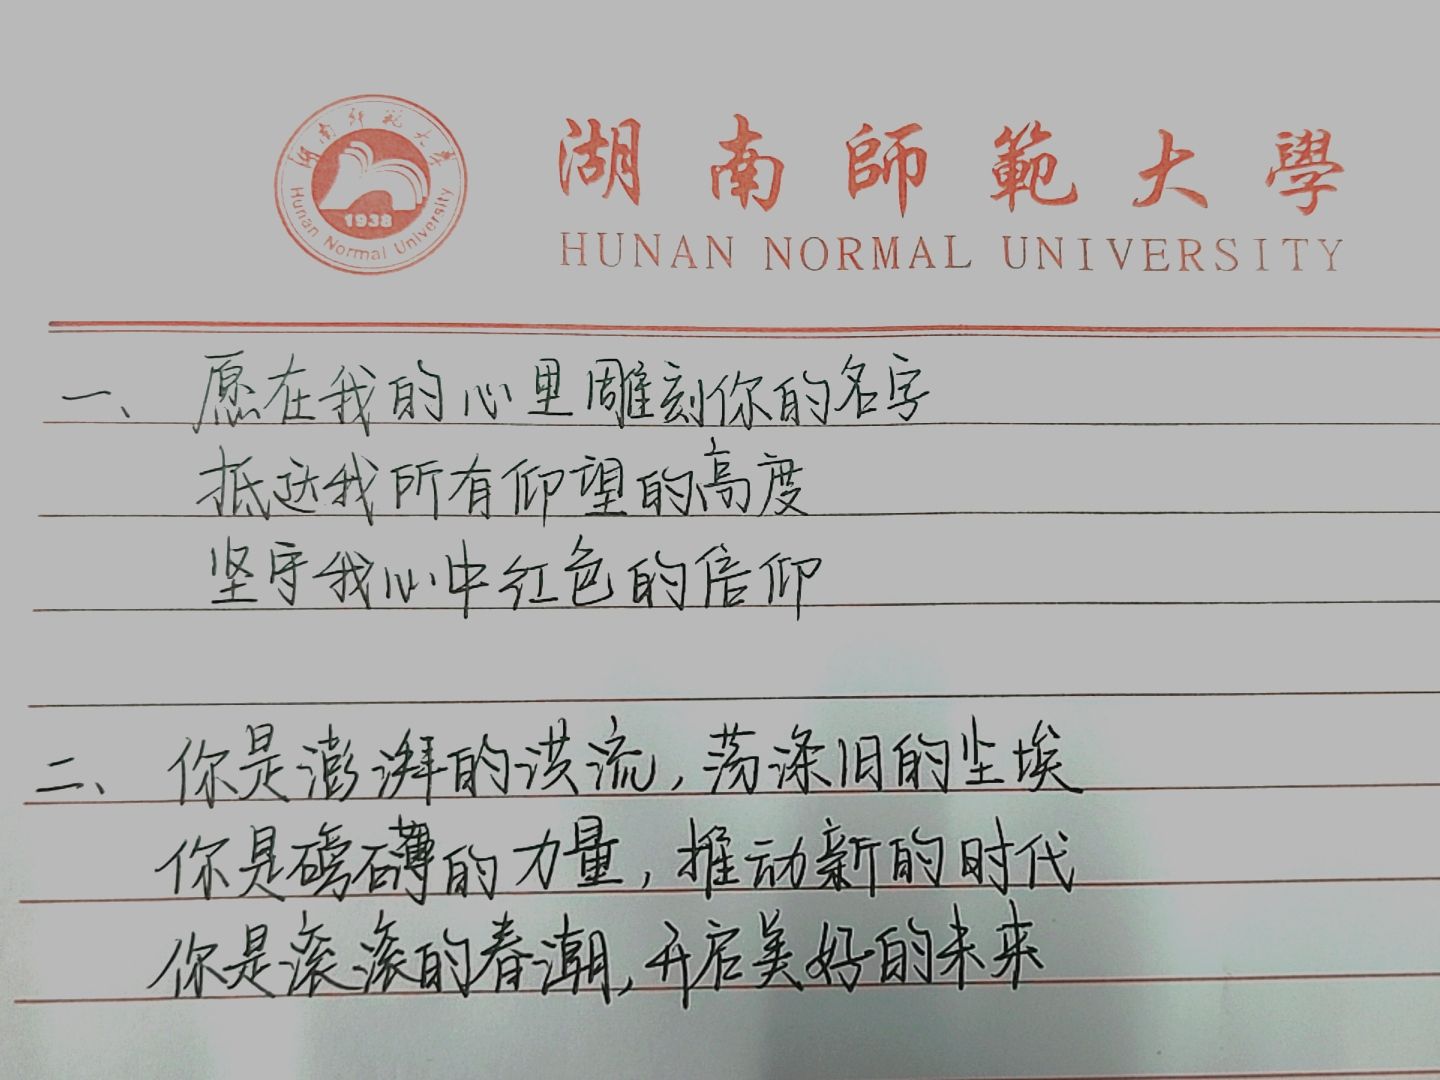 湖南师范大学
Hunan Normal University
1938
湖南師範大學
HUNAN NORMAL UNIVERSITY
一、愿在我的心里雕刻你的名字
抵达我所有仰望的高度
坚守我心中红色的信仰
二、你是澎湃的洪流,荡涤旧的尘埃
你是磅礴的力量,推动新的时代
你是滚滚的春潮,开启美好的未来